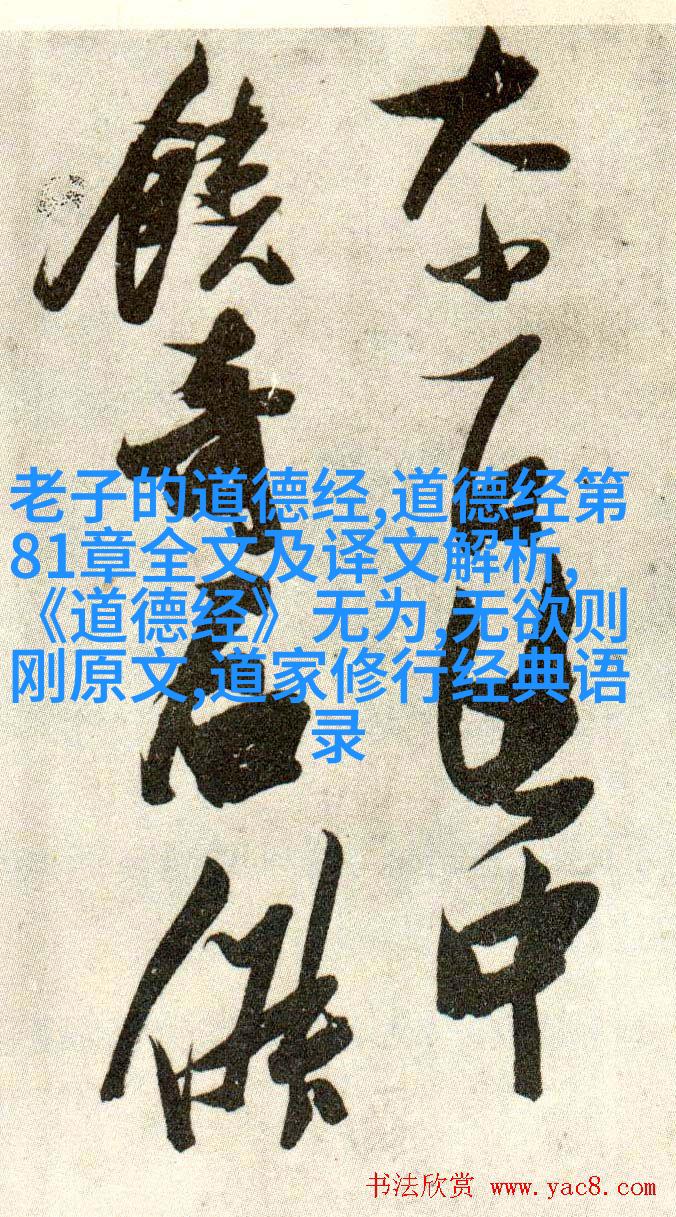 大小
中
老子的道德经,道德经第
81章全文及译文解析,
《道德经》无为,无欲则
刚原文,道家修行经典语
录
书法欣赏 www.yac8.com